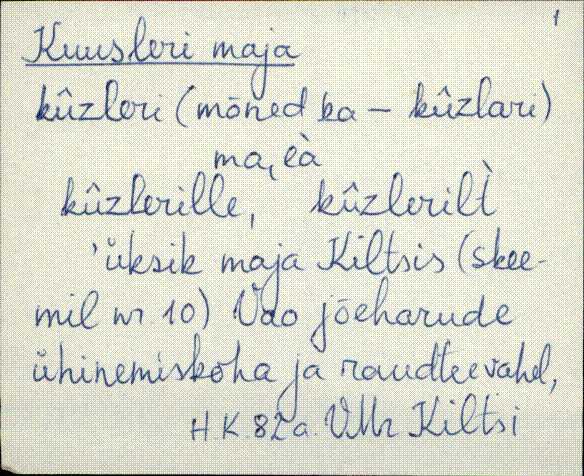 1
Kuusleri maja
kûzleri (mõned ka – kûzlari)
mai̯èà
kûzlerille, kûzlerilt̀
'üksik maja Kiltsis (skee-
mil nr 10) Vao jõeharude
ühinemiskoha ja raudtee vahel,
H.K. 82 a. VMr Kiltsi